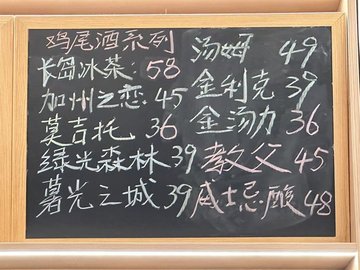 鸡尾酒系列
长岛冰茶:58
加州之恋45
莫吉托 36
绿光森林39
暮光之城39
汤姆 49
金利克39
金汤力36
教父45
威士忌酸48